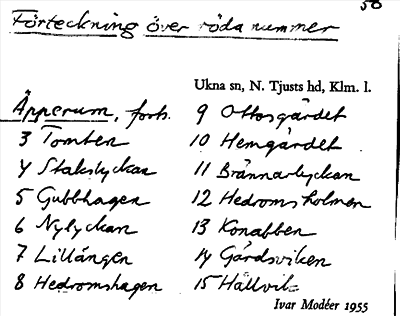 50
Förteckning över röda nummer
Ukna sn, N. Tjusts hd, Klm. l.
Äpperum, forts.
3 Tomten
4 Stakslyckan
5 Gubbhagen
6 Nylyckan
7 Lillängen
8 Hedromshagen
9 Ottosgärdet
10 Hemgärdet
11 Brännarlyckan
12 Hedromsholmen
13 Konabben
14 Gårdsviken
15 Hällvik
Ivar Modéer 1955